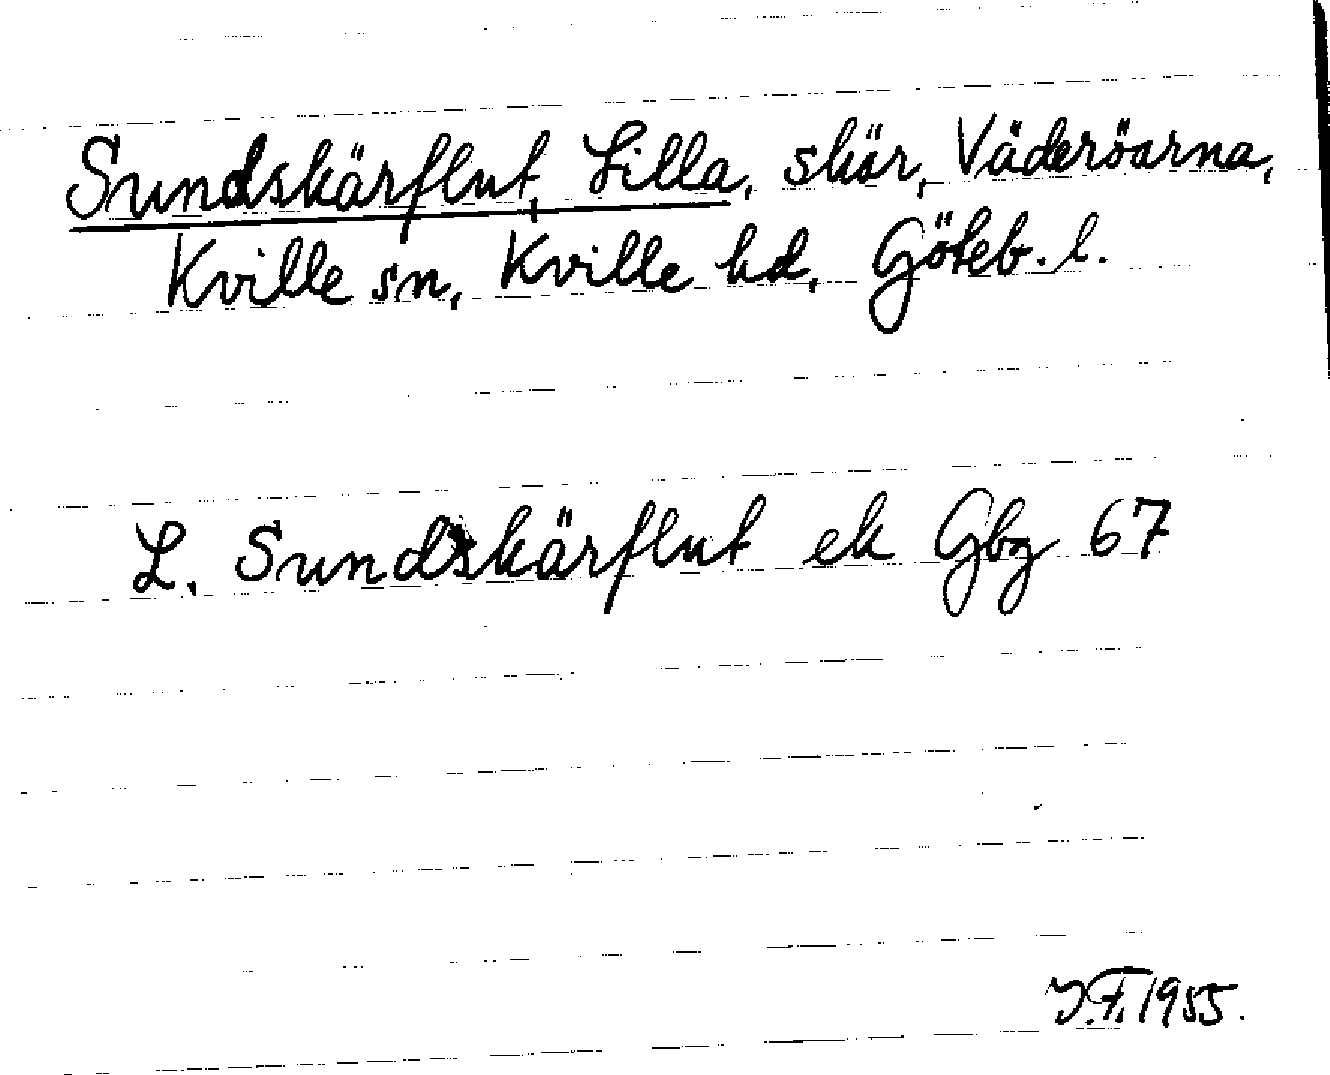 Sundskärflut, Lilla, skär, Väderöarna,
Kville sn, Kville hd, Göteb. l.
L. Sundskärflut ek Gbg 67
J.F. 1955.